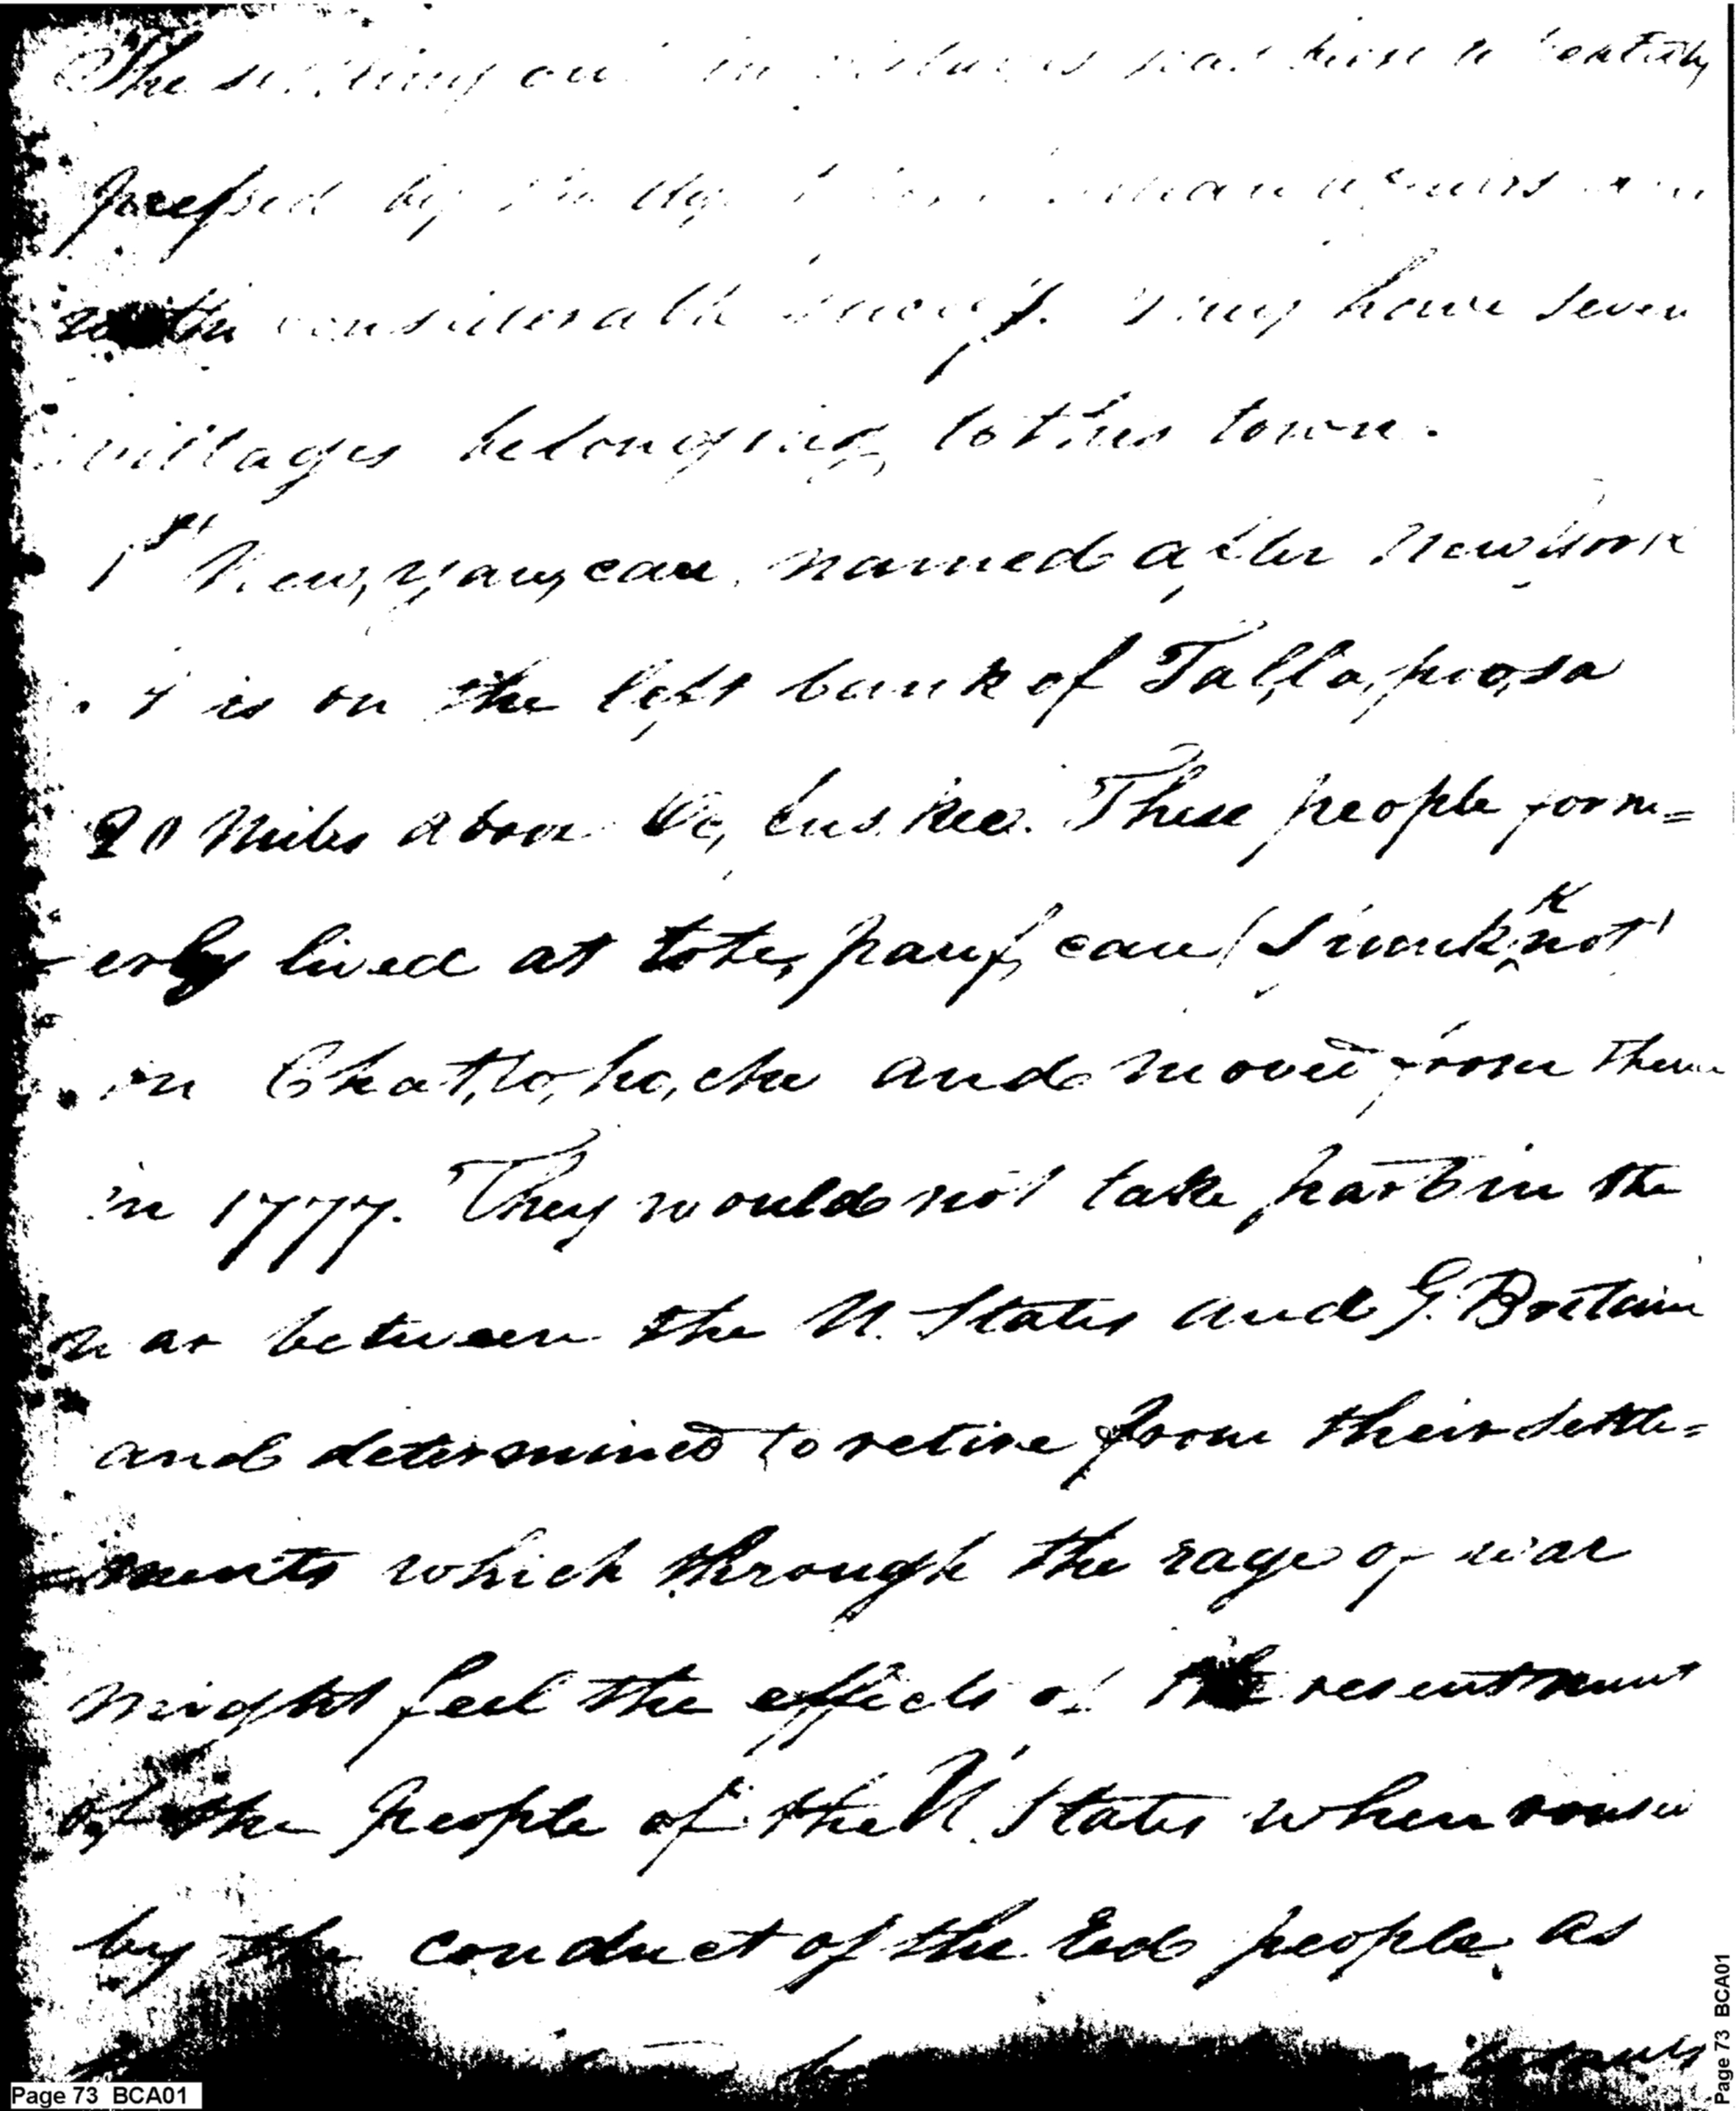 The settling out in villages has been
pressed by the
with considerable They have seven
villages belonging to this town.
1st New,yau,cau, named after New York
it is on the left bank of Tal,la,poo,sa
20 Miles above Oc,fus,kee. These people form=
erly lived at tote,pauf,cau (Spunk,knot)
on Chat,to,ho,che and moved from thence
in 1777. They would not take part in the
war between the U. States and G. Britain
and determined to retire from their settle=
ments which through the rage of war
might feel the effects of the resentment
of the people of the U. States when roused
by the conduct of the red people as
Page 73 BCA01
Page 73 BCA01